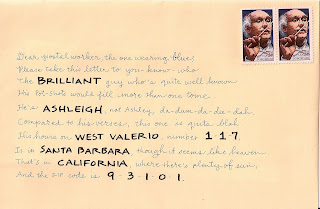 Dear postal worker, the one wearing blue,
Please take this letter to you-know-who
The BRILLIANT guy who's quite well known
His Pot-Shots would fill more than one tome
He's ASHLEIGH, not Ashley, da-dum-da-dee-dah
Compared to his verses, this one is quite blah
His house on WEST VALERIO, number 117,
Is in SANTA BARBARA though it seems like heaven
That's in CALIFORNIA, where there's plenty of sun,
And the zip code is 9·3·1·0·1.